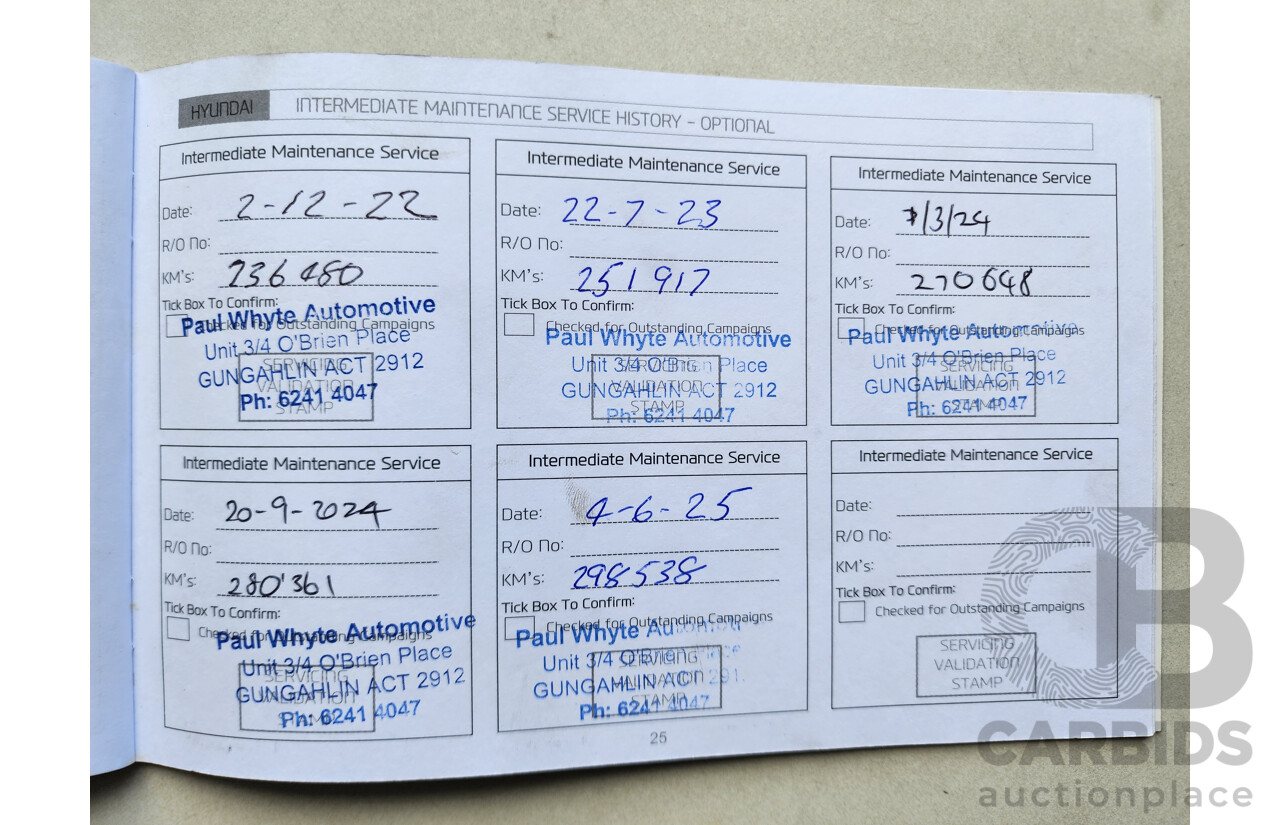 HYUNDAI INTERMEDIATE MAINTENANCE SERVICE HISTORY - OPTIONAL
Intermediate Maintenance Service
Date: 2-12-22
R/O No:
KM's: 236480
Tick Box To Confirm:
Checked for Outstanding Campaigns
Paul Whyte Automotive
Unit 3/4 O'Brien Place
GUNGAHLIN ACT 2912
Ph: 6241 4047
SERVICING
VALIDATION
STAMP
Intermediate Maintenance Service
Date: 22-7-23
R/O No:
KM's: 251917
Tick Box To Confirm:
Checked for Outstanding Campaigns
Paul Whyte Automotive
Unit 3/4 O'Brien Place
GUNGAHLIN ACT 2912
Ph: 6241 4047
SERVICING
VALIDATION
STAMP
Intermediate Maintenance Service
Date: /3/24
R/O No:
KM's: 270648
Tick Box To Confirm:
Checked for Outstanding Campaigns
Paul Whyte Automotive
Unit 3/4 O'Brien Place
GUNGAHLIN ACT 2912
Ph: 6241 4047
SERVICING
VALIDATION
STAMP
Intermediate Maintenance Service
Date: 20-9-2024
R/O No:
KM's: 280'361
Tick Box To Confirm:
Checked for Outstanding Campaigns
Paul Whyte Automotive
Unit 3/4 O'Brien Place
GUNGAHLIN ACT 2912
Ph: 6241 4047
SERVICING
VALIDATION
STAMP
Intermediate Maintenance Service
Date: 4-6-25
R/O No:
KM's: 298538
Tick Box To Confirm:
Checked for Outstanding Campaigns
Paul Whyte Automotive
Unit 3/4 O'Brien Place
GUNGAHLIN ACT 291
Ph: 6241 4047
SERVICING
VALIDATION
STAMP
Intermediate Maintenance Service
Date:
R/O No:
KM's:
Tick Box To Confirm:
Checked for Outstanding Campaigns
SERVICING
VALIDATION
STAMP
25
CB
CARBIDS
auctionplace